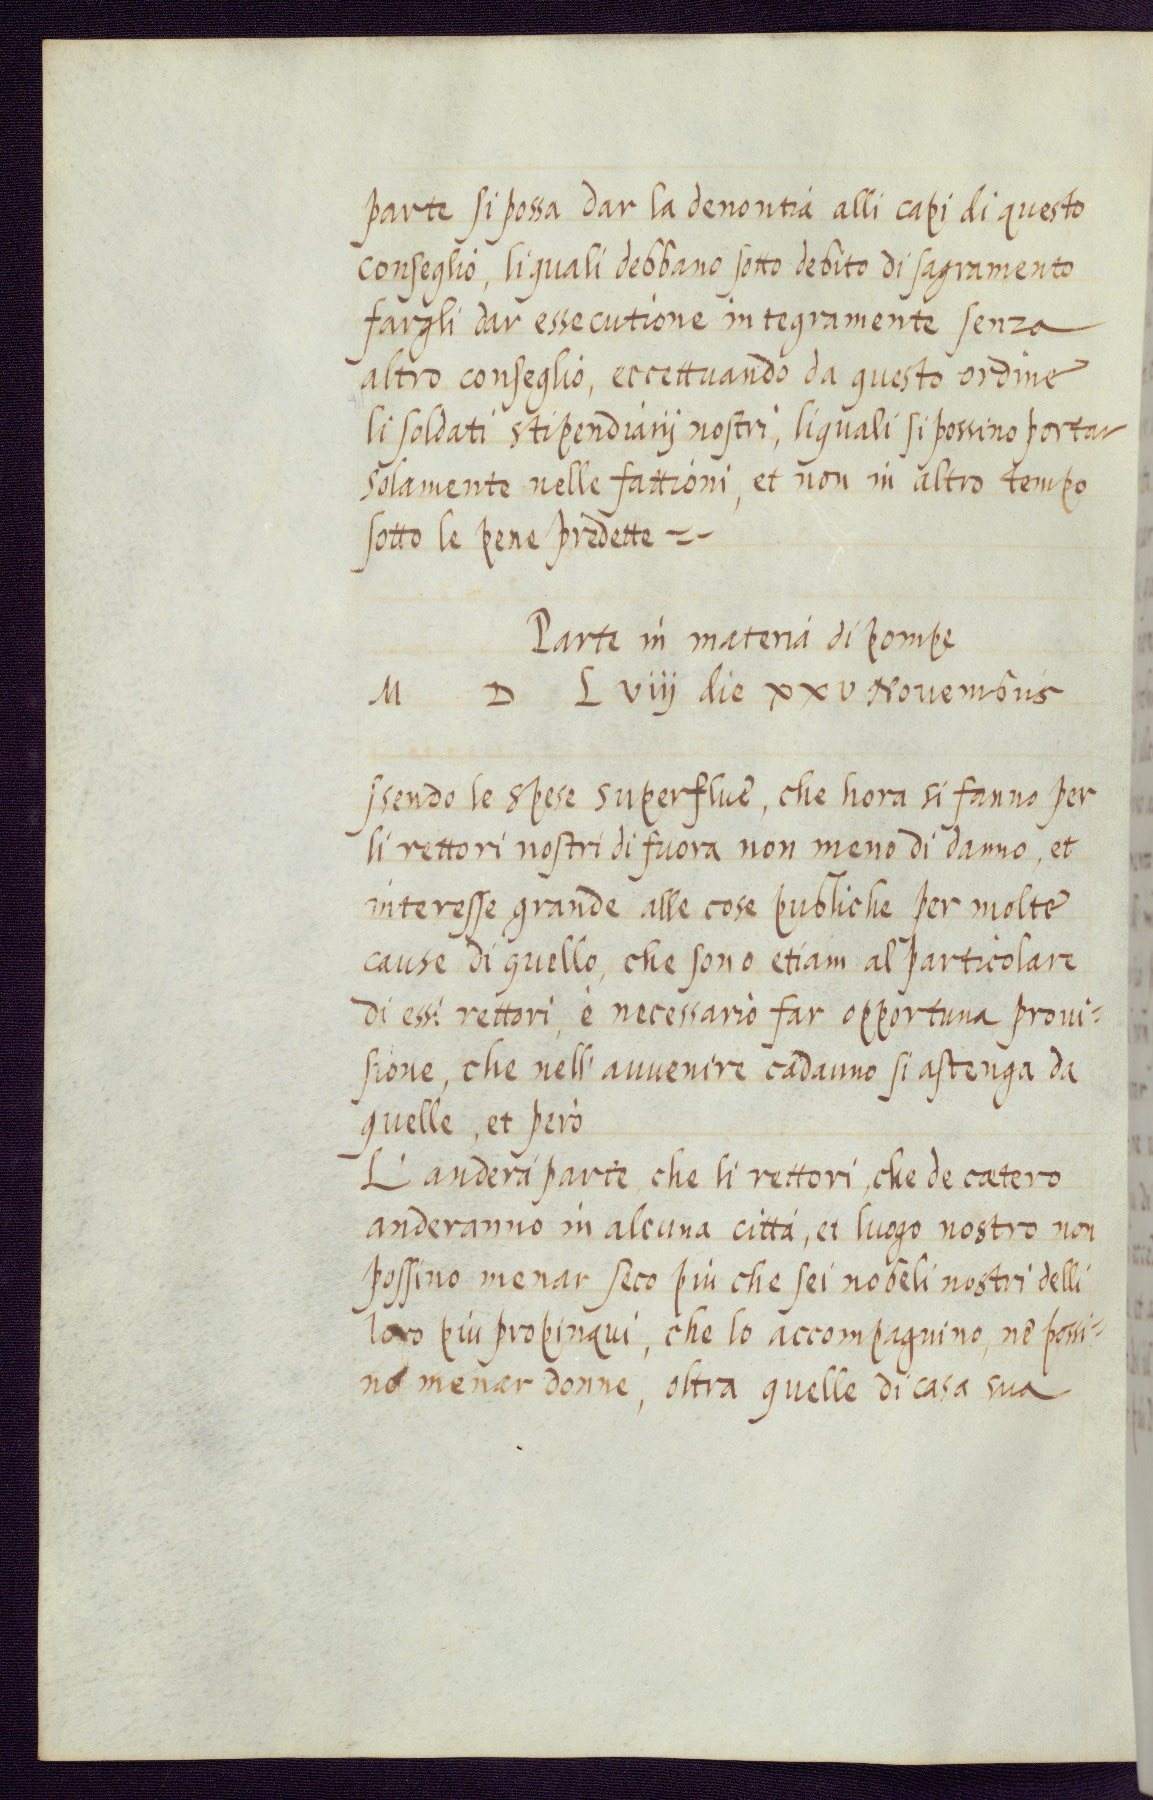 parte si possa dar la denontia alli capi di questo
conseglio, liquali debbano sotto debito di sagramento
fargli dar essecutione integramente senza
altro conseglio, eccettuando da questo ordine
li soldati stipendiarij nostri, liquali si possino portar
solamente nelle fattioni, et non in altro tempo
sotto le pene predette
Parte in materia di pompe
M D L viij die xxv Novembris
ssendo le spese superflue, che hora si fanno per
li rettori nostri di fuora non meno di danno, et
interesse grande alle cose publiche per molte
cause di quello, che sono etiam al particolare
di essi rettori, è necessario far opportuna proui=
sione, che nell'auuenire cadauno si astenga da
quelle, et però
L'anderà parte, che li rettori, che de cætero
anderanno in alcuna città, et luogo nostro non
possino menar seco più che sei nobeli nostri delli
loro più propinqui, che lo accompagnino, nè possi=
no menar donne, oltra quelle di casa sua